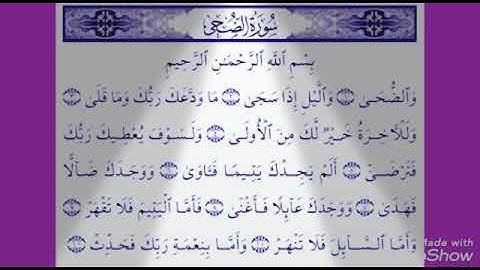 سُورَةُ الضُّحَىٰ
بِسْمِ ٱللَّهِ ٱلرَّحْمَـٰنِ ٱلرَّحِيمِ
وَٱلضُّحَىٰ ۝١ وَٱلَّيْلِ إِذَا سَجَىٰ ۝٢ مَا وَدَّعَكَ رَبُّكَ وَمَا قَلَىٰ ۝٣
وَلَلْـَٔاخِرَةُ خَيْرٌ لَّكَ مِنَ ٱلْأُولَىٰ ۝٤ وَلَسَوْفَ يُعْطِيكَ رَبُّكَ
فَتَرْضَىٰٓ ۝٥ أَلَمْ يَجِدْكَ يَتِيمًا فَـَٔاوَىٰ ۝٦ وَوَجَدَكَ ضَآلًّا
فَهَدَىٰ ۝٧ وَوَجَدَكَ عَآئِلًا فَأَغْنَىٰ ۝٨ فَأَمَّا ٱلْيَتِيمَ فَلَا تَقْهَرْ ۝٩
وَأَمَّا ٱلسَّآئِلَ فَلَا تَنْهَرْ ۝١٠ وَأَمَّا بِنِعْمَةِ رَبِّكَ فَحَدِّثْ ۝١١
Made with
Show